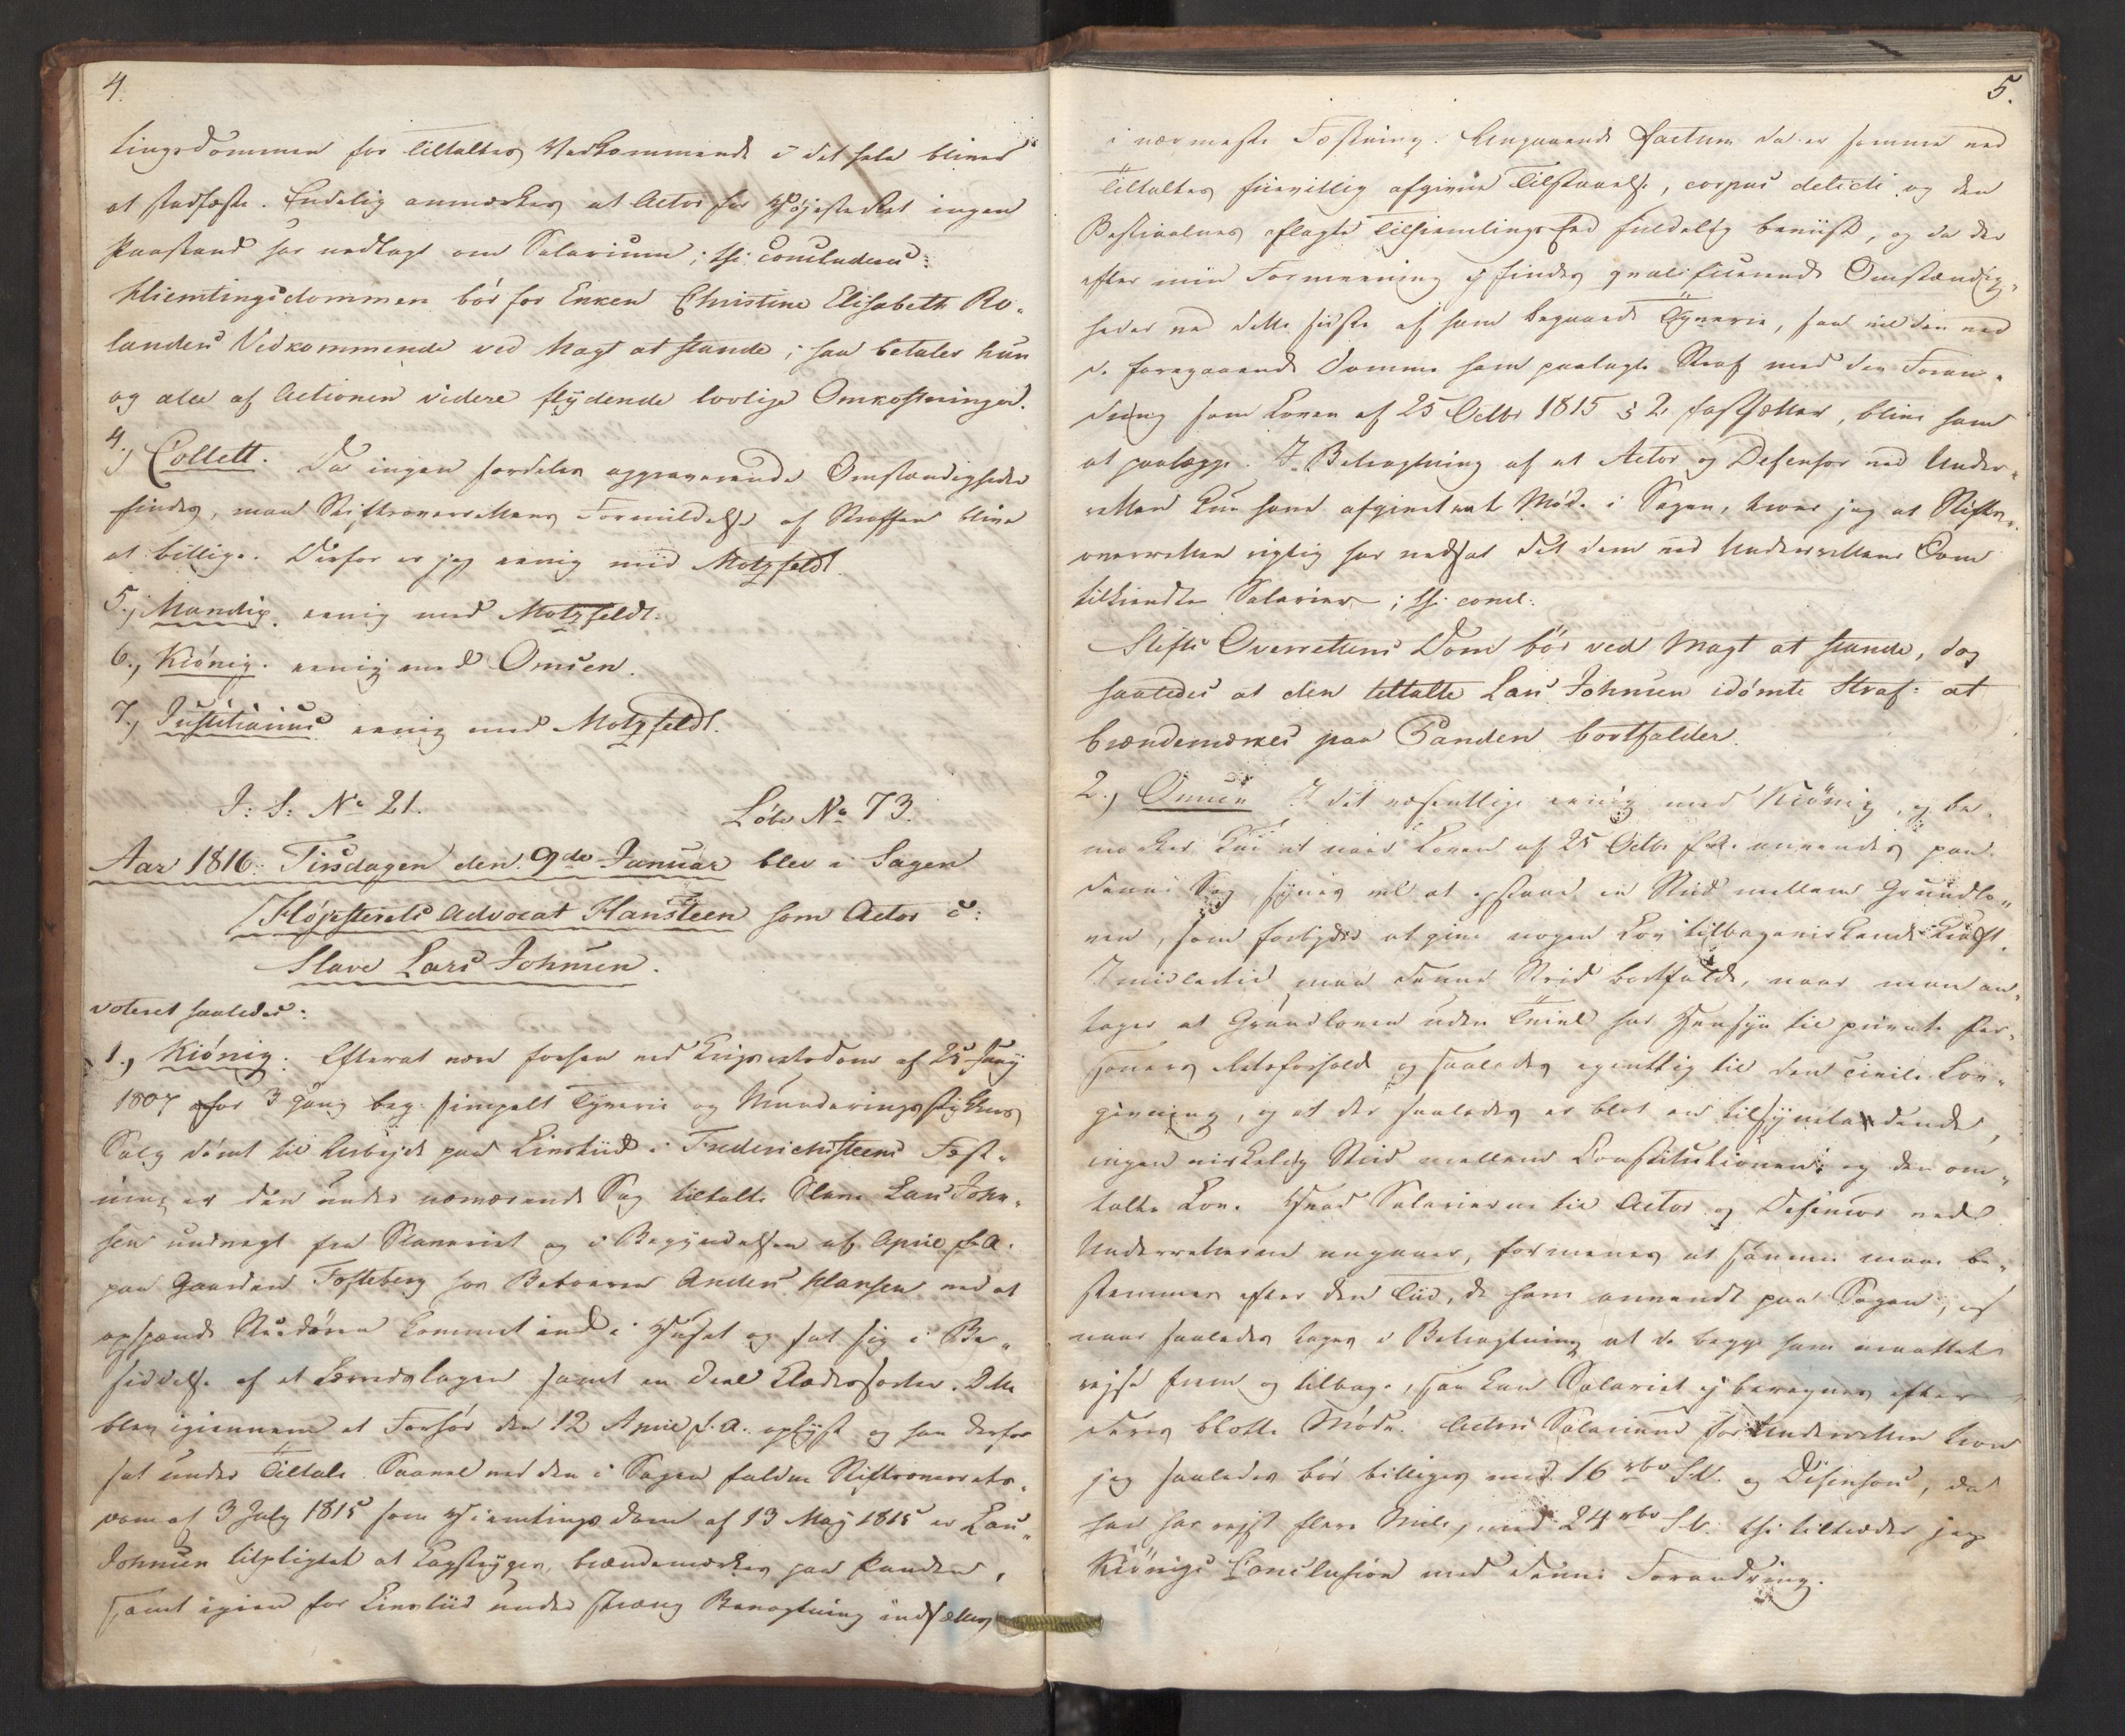 4.
tingsdommen for Tiltaltes Vedkommende i det hele bliver
at stadfæste. Endelig anmærkes at Actor for Højesteret ingen
Paastand har nedlagt om Salarium; thi concluderes:
Hiemtingsdommen bör for Enken Christine Elisabeth Ro-
landers Vidkommende ved Magt at stande; saa betaler hun
og alle af Actionen videre flydende lovlige Omkostninger.
4.) Collett. Da ingen særdeles aggraverende Omstændigheder
findes, maa Stiftsoverrettens Formildelse af Straffen blive
at billige. Derfor er jeg eenig med Motzfeldt
5., Mandix. eenig med Motzfeldt.
6., Kiönig. eenig med Omsen.
7., Justitiarius eenig med Motzfeldt.
J: S: No 21.
Löbe No 73.
Aar 1816. Tirsdagen den 9de Januar blev i Sagen
Höjesterets Advocat Hansteen som Actor c:
Slave Lars Johnsen.
voteret saaledes:
1., Kiönig. Efterat være forhen ved Krigsretsdom af 25 Junij
1807 for 3 Gang beg. simpelt Tyverie og Munderingsstykkers
Salg dömt til Arbejde paa Livstiid i Friderichsteens Fæst-
ning er den under nærværende Sag tiltalte Slave Lars John-
sen undvegt fra Slaveriet og i Begyndelsen af April f. A.
paa Gaarden Tosteberg hos Beboeren Anders Hansen ved at
opspænde Stuedören kommet ind i Huset og sat sig i Be-
siddelse af et Brendslagen samt en Deel Klædessorter. Dette
blev igiennem et Forhör den 12 April f. A. oplyst og han derfor
sat under Tiltale. Saavel ved den i Sagen faldne Stiftsoverrets-
dom af 3 July 1815 som Hiemtings dom af 13 May 1815 er Lars
Johnsen tilpligtet at Kagstryges, brændemærkes paa Panden,
samt igien for Livstiid under streng Bevogtning indsættes
5.
i nærmeste Fæstning. Angaaende factum da er samme ved
Tiltaltes frievillig afgivne Tilstaaelse, corpus delicti og den
Bestiaalnes aflagte Tilhiemlings Eed fuldelig beviist, og da der
efter min Formeening ej findes qualificerende Omstændig-
heder ved dette sidste af ham begaaede Tyverie, saa vil den ved
de foregaaende Domme ham paalagte Straf med den Foran-
dring som Loven af 25 Octbr 1815 § 2 fastsætter, blive ham
at paalægge. I Betragtning af at Actor og Defensor ved Under-
retten kun have afgivet et Möde i Sagen, troer jeg at Stifts-
overretten rigtig har nedsat det dem ved Underrettens Dom
tilkiendte Salarier; thi concl:
Stifts Overrettens Dom bör ved Magt at stande, dog
saaledes at den tiltalte Lars Johnsen idömte Straf: at
brændemærkes paa Panden bortfalder.
2., Omsen I det væsentlige eenig med Kiönig, og be-
mærker kun at naar Loven af 25 Octbr f. A. anvendes paa
denne Sag, synes vel at opstaae en Strid mellem Grundlo-
ven, som forbyder at give nogen Lov tilbagevirkende Kraft.
Imidlertid maa denne Strid bortfalde, naar man an-
tager at Grundloven uden Tvivl har Hensyn til private Per-
soners Retsforhold og saaledes egentlig til den civile Lov-
givning, og at der saaledes er blot en tilsyneladende,
ingen virkelig Strid mellem Constitutionen og den om-
talte Lov. Hvad Salarierne til Actor og Defensor ved
Underretterne angaaer, formenes at samme maae be-
stemmes efter den Tiid, de have anvendt paa Sagen, og
naar saaledes tages i Betragtning at de begge have maattet
rejse frem og tilbage, saa kan Salariet ej beregnes efter
deres blotte Möde. Actors Salarium for Underretten troer
jeg saaledes bör billiges med 16 rbd S.V. og Defensors, da
han har rejst flere Mile, med 24 rbd S.V. thi tiltræder jeg
Kiönigs Conclusion med denne Forandring.